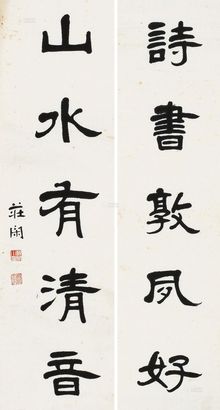 詩書敦夙好
山水有清音
莊閑